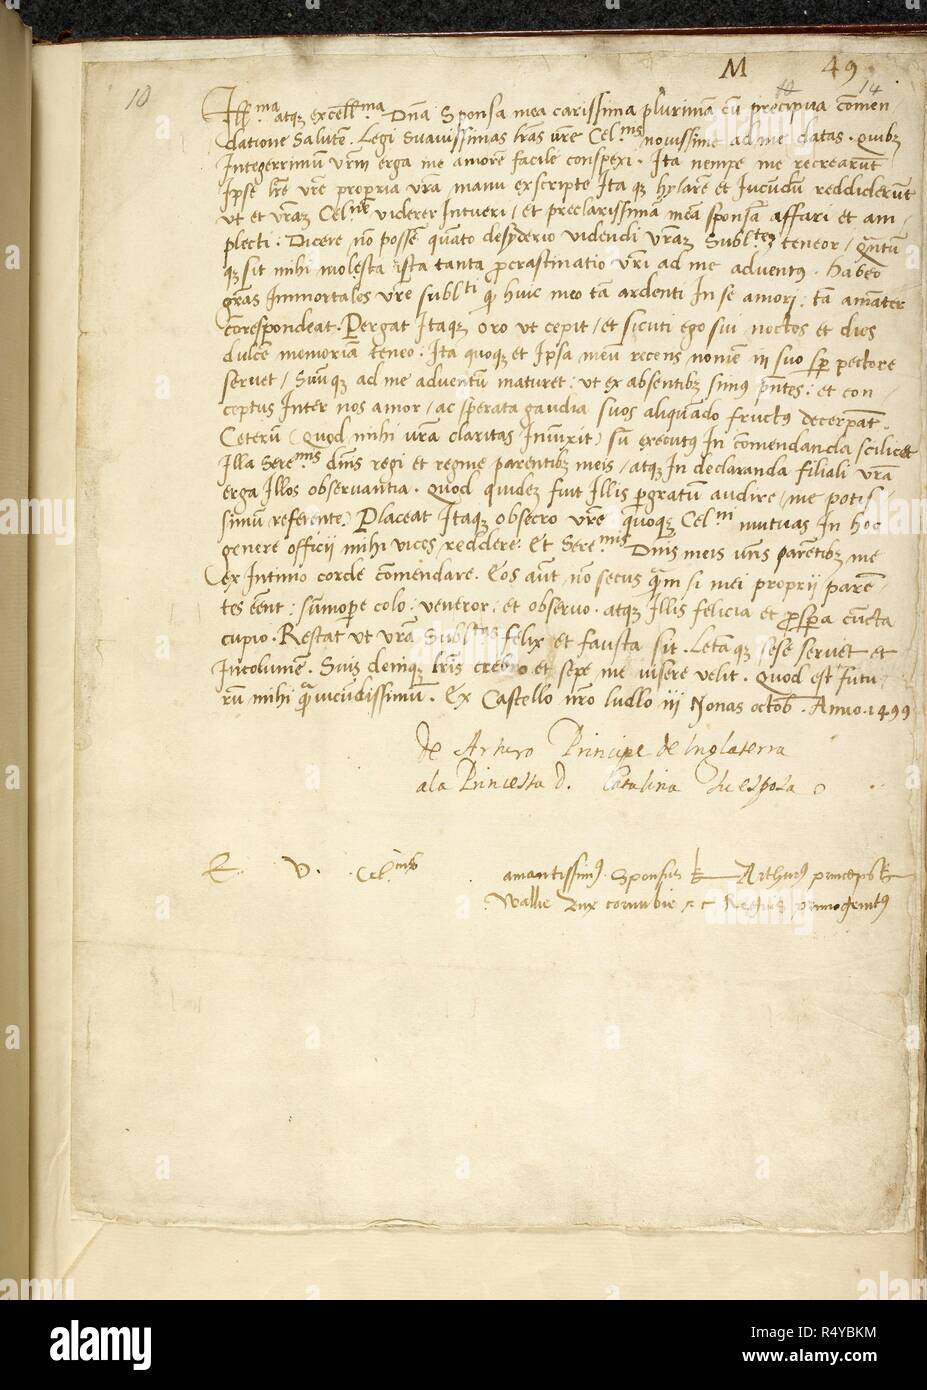 M 49
10 10 14
Ill.ma atqz excell.ma Dna Sponsa mea carissima plurimã cũ precipua cõmen
datione Salutẽ. Legi suavissimas lrãs vrẽ Cel.nis novissime ad me datas. Quibz
Integerrimũ vrm̃ erga me amorẽ facile conspexi. Ita nempe me recrearũt
Ipse lrẽ vrẽ propria vrã manu exscripte Ita qz hylarẽ et Iucũdũ reddiderũt
vt et vrãz Cel.nẽ viderer Intueri / et preclarissimã meã sponsã affari et am /
plecti. Dicere nõ possẽ quãto desyderio videndi vrãz Subl.tez teneor / Quãtũ
qz sit mihi molesta ista tanta procrastinatio vrĩ ad me advent9. Habeo
grãs Immortales vrẽ subl.ti q huic meo tã ardenti In se amori: tã amãter
Correspondeat. Pergat Itaqz oro vt cepit / et sicuti ego sui noctes et dies
dulcẽ memoriã teneo. Ita quoqz et Ipsa meũ recens nomẽ in suo sp pectore
servet / Suũqz ad me adventũ maturet: vt ex absentibz simus pñtes: et con /
ceptus Inter nos amor / ac sperata gaudia suos aliquãdo fruct9 decerpãt.
Ceterũ (Quod mihi vrã claritas Iniũxit) sũ executus In cõmendanda scilicet
Illa Sere.nis dñis regi et regine parentibz meis / atqz In declaranda filiali vrã
erga Illos observantia. Quod quidez fuit Illis pergratũ audire / me potis /
simũ referente) Placeat Itaqz obsecro vrẽ quoqz Cel.ni mutuas In hoc
genere officii mihi vices reddere: Et Sere.mis Dnis meis vrĩs parẽtibz me
ex Intimo corde cõmendare. Eos aũt nõ secus quãm si mei proprii parẽ /
tes eẽnt: sũmope colo: veneror: et observo. atqz Illis felicia et prospera cũcta
cupio. Restat vt vrã Subl.tas felix et fausta sit. Letaqz sese servet et
Incolumẽ. Suis deniqz lrĩs crebro et sepe me visere velit. Quod est futu /
rũ mihi quã iucũdissimũ. Ex Castello nrõ ludlo iii Nonas octob. Anno. 1499
de Arturo Principe de Inglaterra
ala Princessa d. Catalina su esposa
E. V. Cel.nis
amantissim9 Sponsus Arthur9 princeps
Wallie Dux cornubie &c Regius primogenit9
alamy
Image ID: R4YBKM
www.alamy.com